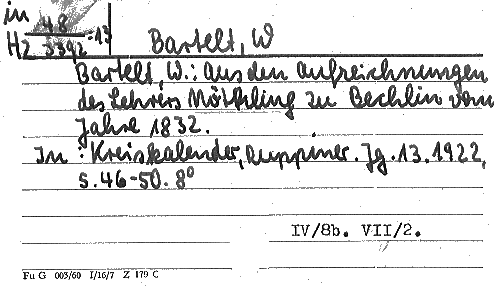 in 48
Hz 3392:13
Bartelt, W
Bartelt, W.: Aus den Aufzeichnungen
des Lehrers Mötefling zu Bechlin vom
Jahre 1832.
In: Kreiskalender, Ruppiner. Jg. 13. 1922,
S. 46-50. 8°
IV/8b. VII/2.
Fu G 003/60 I/16/7 Z 179 C